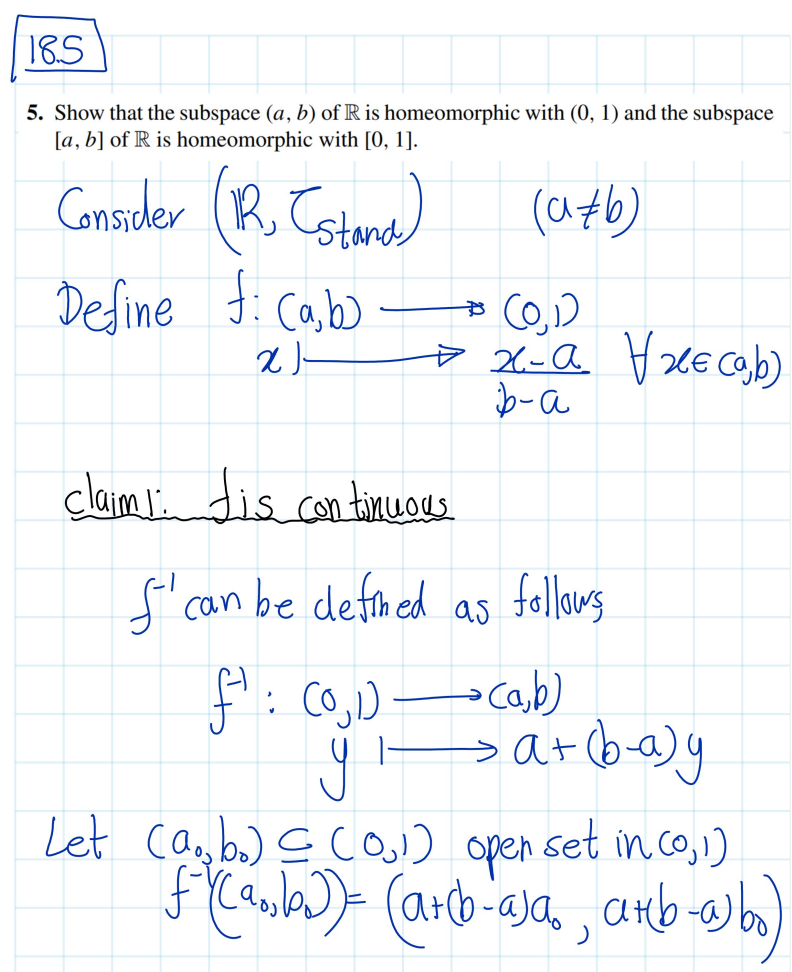 18.5
5. Show that the subspace (a, b) of ℝ is homeomorphic with (0, 1) and the subspace
[a, b] of ℝ is homeomorphic with [0, 1].
Consider (ℝ, τ_Stand) (a ≠ b)
Define f: (a,b) ⟶ (0,1)
x ⟼ (x-a)/(b-a) ∀ x ∈ (a,b)
claim 1: f is continuous
f⁻¹ can be defined as follows
f⁻¹ : (0,1) ⟶ (a,b)
y ⟼ a + (b-a) y
Let (a₀, b₀) ⊆ (0,1) open set in (0,1)
f⁻¹((a₀,b₀)) = (a+(b-a)a₀ , a+(b-a)b₀)